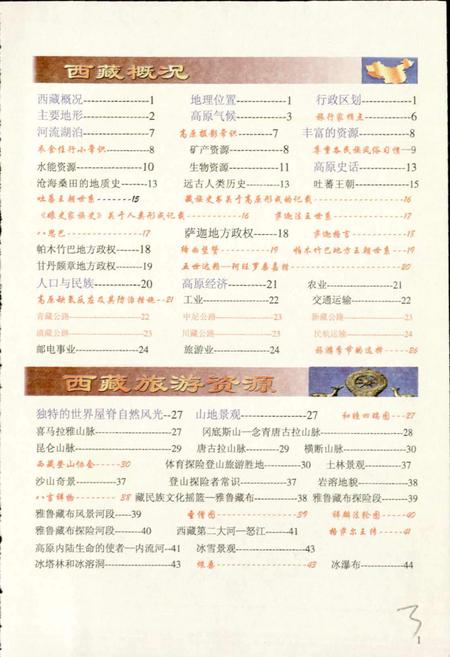 西藏概况
西藏概况----------------1 地理位置------------1 行政区划----------1
主要地形----------------2 高原气候------------3 旅行家榜主----------6
河流湖泊----------------7 高原摄影常识--------7 丰富的资源--------8
衣食住行小常识----------8 矿产资源------------8 尊重各民族风俗习惯--9
水能资源----------------10 生物资源------------11 高原史话----------13
沧海桑田的地质史-------13 远古人类历史----------13 吐蕃王朝----------15
吐蕃王朝世系----------15 藏族史书关于高原形成的记载----------16
《娘史家族史》关于人类形成记载----------16 萨迦法王世系----------17
八思巴----------17 萨迦地方政权------18 萨迦格言----------18
帕木竹巴地方政权------18 帕木竹巴地方王朝世系---19
甘丹颇章地方政权--------19 五世达赖—阿旺罗桑嘉措----------20
人口与民族----------20 高原经济----------21 农业----------21
高原缺氧反应及其防治措施--21 工业----------22 交通运输----------22
青藏公路----------22 中尼公路----------23 新藏公路----------23
滇藏公路----------23 川藏公路----------23 民航运输----------24
邮电事业----------24 旅游业----------24 旅游季节的选择-----26
西藏旅游资源
独特的世界屋脊自然风光--27 山地景观----------27 和睦四瑞图---27
喜马拉雅山脉----------27 冈底斯山—念青唐古拉山脉----------28
昆仑山脉----------29 唐古拉山脉--------29 横断山脉--------30
西藏登山协会-----30 体育探险登山旅游胜地----------30 土林景观----------37
沙山奇景----------37 登山探险者常识----------37 岩溶地貌----------38
八吉祥物----------38 藏民族文化摇篮—雅鲁藏布----------38 雅鲁藏布探险段----39
雅鲁藏布风景河段-----39 39 40
雅鲁藏布探险河段------40 西藏第二大河—怒江------41 格萨尔王传----41
高原内陆生命的使者—内流河--41 冰雪景观----------43
冰塔林和冰溶洞----------43 43 冰瀑布----------44
3
1